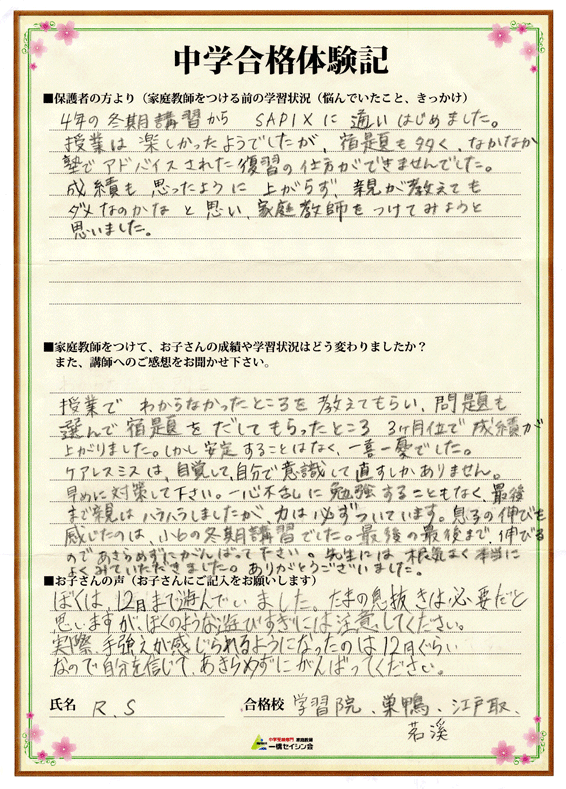 中学合格体験記
■保護者の方より（家庭教師をつける前の学習状況（悩んでいたこと、きっかけ）
4年の冬期講習から SAPIXに通いはじめました。
授業は楽しかったようでしたが、宿題も多く、なかなか
塾でアドバイスされた復習の仕方ができませんでした。
成績も思ったように上がらず 親が教えても
ダメなのかな と思い、家庭教師をつけてみようと
思いました。
■家庭教師をつけて、お子さんの成績や学習状況はどう変わりましたか？
また、講師へのご感想をお聞かせ下さい。
授業で わからなかったところを教えてもらい、問題も
選んで宿題をだしてもらったところ 3ヶ月位で成績が
上がりました。しかし安定することはなく、一喜一憂でした。
ケアレスミスは、自覚して、自分で意識して直すしかありません。
早めに対策して下さい。一心不乱に勉強することもなく、最後
まで親はハラハラしましたが 力は必ずついています。息子の伸びを
感じたのは、小6の冬期講習でした。最後の最後まで、伸びる
のであきらめずにがんばって下さい。先生には 根気よく本当に
よくみていただきました。ありがとうございました。
■お子さんの声（お子さんにご記入をお願いします）
ぼくは、12月まで遊んでいました。たまの息抜きは必要だと
思いますが、ぼくのような遊びすぎには注意してください。
実際、手強えが感じられるようになったのは12月ぐらい
なので自分を信じて、あきらめずにがんばってください。
氏名 R.S 合格校 学習院、巣鴨、江戸取、
茗溪
中学受験専門 家庭教師
一橋セイシン会